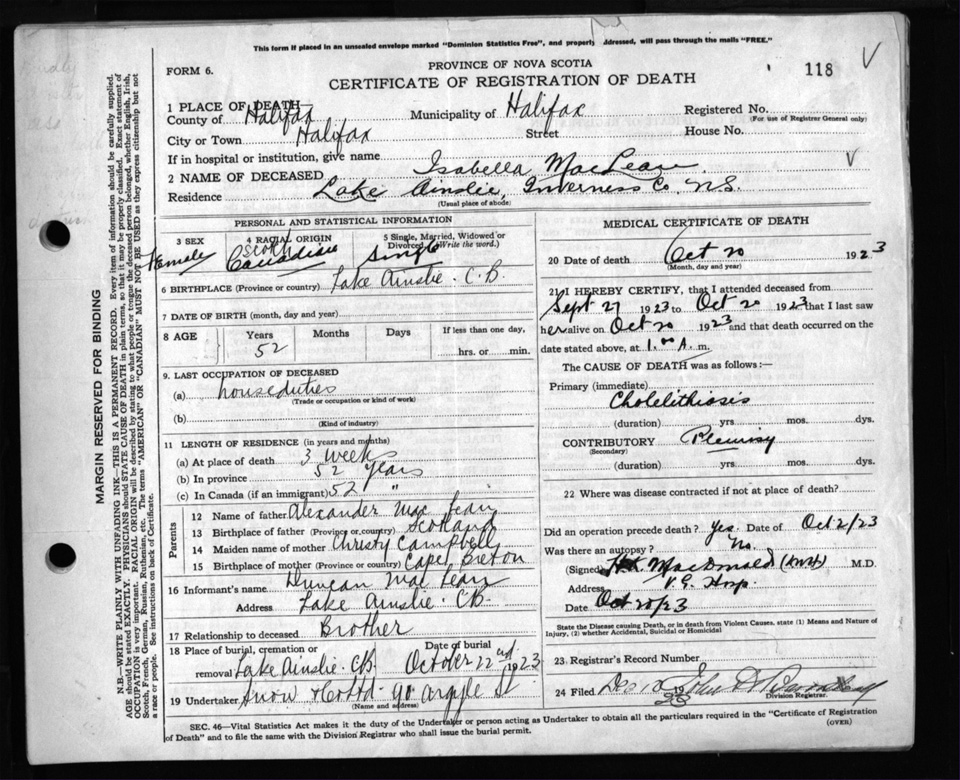 This form if placed in an unsealed envelope marked "Dominion Statistics Free", and properly addressed, will pass through the mails "FREE."
FORM 6.
PROVINCE OF NOVA SCOTIA
CERTIFICATE OF REGISTRATION OF DEATH
118
1 PLACE OF DEATH—
County of Halifax Municipality of Halifax Registered No.
(For use of Registrar General only)
City or Town Halifax Street House No.
If in hospital or institution, give name
2 NAME OF DECEASED Isabella MacLean
Residence Lake Ainslie, Inverness Co, N.S.
(Usual place of abode)
PERSONAL AND STATISTICAL INFORMATION
3 SEX Female
4 RACIAL ORIGIN Scotch Canadian
5 Single, Married, Widowed or Divorced (Write the word.) Single
6 BIRTHPLACE (Province or country) Lake Ainslie. C.B.
7 DATE OF BIRTH (month, day and year)
8 AGE Years 52 Months Days If less than one day, hrs. or min.
9. LAST OCCUPATION OF DECEASED
(a) houseduties
(Trade or occupation or kind of work)
(b)
(Kind of industry)
11 LENGTH OF RESIDENCE (in years and months)
(a) At place of death 3 weeks
(b) In province 52 years
(c) In Canada (if an immigrant) 52 "
Parents
12 Name of father Alexander Mac Lean
13 Birthplace of father (Province or country) Scotland
14 Maiden name of mother Christy Campbell
15 Birthplace of mother (Province or country) Cape Breton
16 Informant's name Duncan Mac Lean
Address Lake Ainslie. C.B.
17 Relationship to deceased Brother
18 Place of burial, cremation or removal Lake Ainslie. C.B. Date of burial October 22nd 1923
19 Undertaker Snow 90 Argyle St
(Name and address)
MEDICAL CERTIFICATE OF DEATH
20 Date of death Oct 20 1923
(Month, day and year)
21 I HEREBY CERTIFY, that I attended deceased from
Sept 27 1923 to Oct 20 1923 that I last saw
her alive on Oct 20 1923 and that death occurred on the
date stated above, at 1.00 A. m.
The CAUSE OF DEATH was as follows:—
Primary (immediate)
Cholelithiasis
(duration) yrs mos. dys.
CONTRIBUTORY Pleurisy
(Secondary)
(duration) yrs mos. dys.
22 Where was disease contracted if not at place of death?
Did an operation precede death? Yes. Date of Oct 2/23
Was there an autopsy? No.
(Signed) MacDonald M.D.
Address V.G. Hosp.
Date Oct 20/23
State the Disease causing Death, or in death from Violent Causes, state (1) Means and Nature of Injury, (2) whether Accidental, Suicidal or Homicidal
23. Registrar's Record Number
24 Filed 19 23 John
Division Registrar.
SEC. 46—Vital Statistics Act makes it the duty of the Undertaker or person acting as Undertaker to obtain all the particulars required in the "Certificate of Registration
of Death" and to file the same with the Division Registrar who shall issue the burial permit. (OVER)
MARGIN RESERVED FOR BINDING
N.B.—WRITE PLAINLY WITH UNFADING INK—THIS IS A PERMANENT RECORD. Every item of information should be carefully supplied.
AGE should be stated EXACTLY. PHYSICIANS should STATE CAUSE OF DEATH in plain terms, so that it may be properly classified. Exact statement of
OCCUPATION is very important. RACIAL ORIGIN will be described by stating to what people or tongue the deceased person belonged, whether English, Irish,
Scotch, French, German, Russian, Ruthenian, etc. The terms "AMERICAN" OR "CANADIAN" MUST NOT BE USED as they express citizenship but not
a race or people. See instructions on back of Certificate.